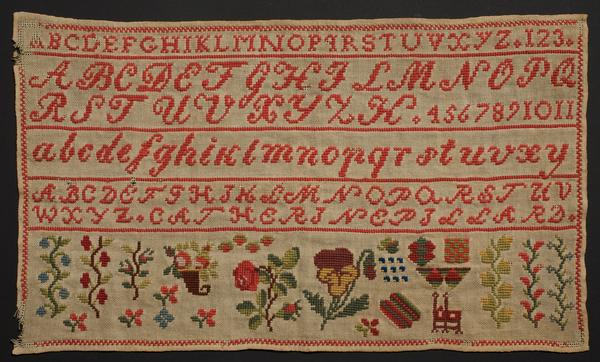 ABCDEFGHIKLMNOPQRSTUVXYZ.123.
ABCDEFGHILMNOPQ
RSTUVXYZK.4567891011
abcdefghiklmnopqrstuvxy
ABCDEFGHIKLMNOPQRSTUV
WXYZ.CATHERINEPILLARD.